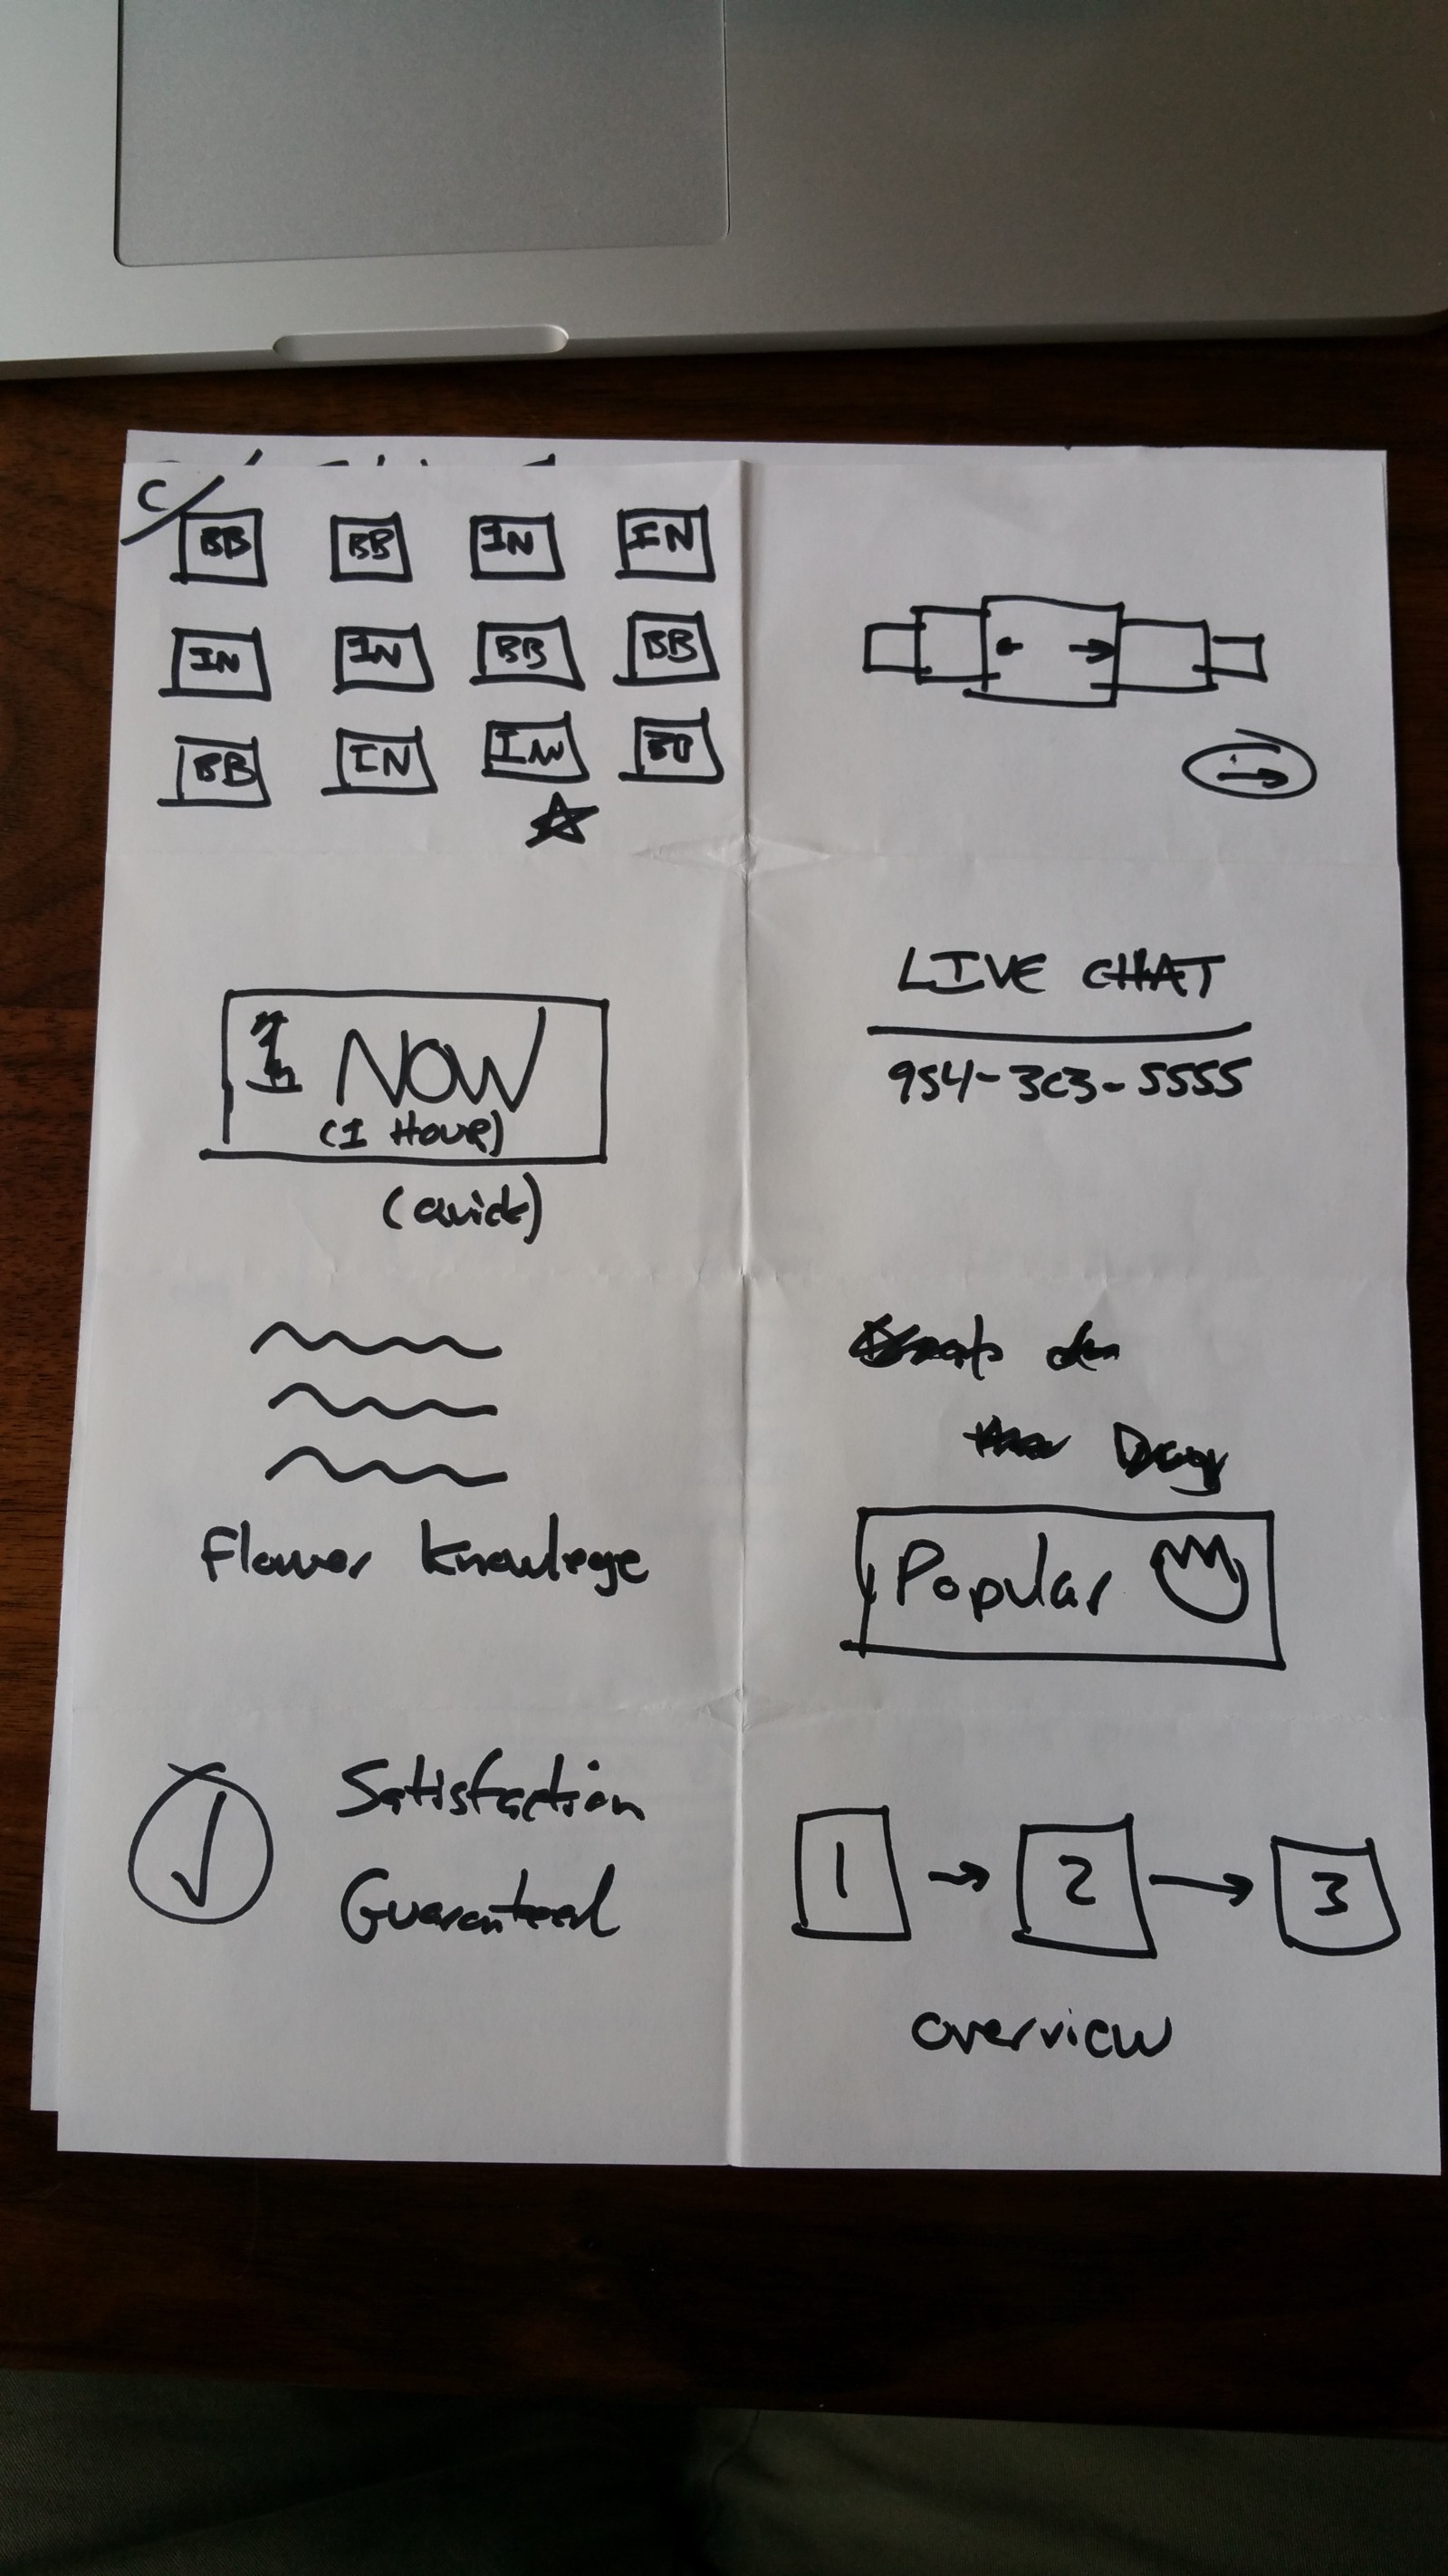 C/
BB BB IN IN
IN IN BB BB
BB IN IN
NOW
(1 HOUR)
(Quick)
LIVE CHAT
954-303-5555
Flower knowlege
Popular
Satisfaction
Guaranteed
1 → 2 → 3
overview